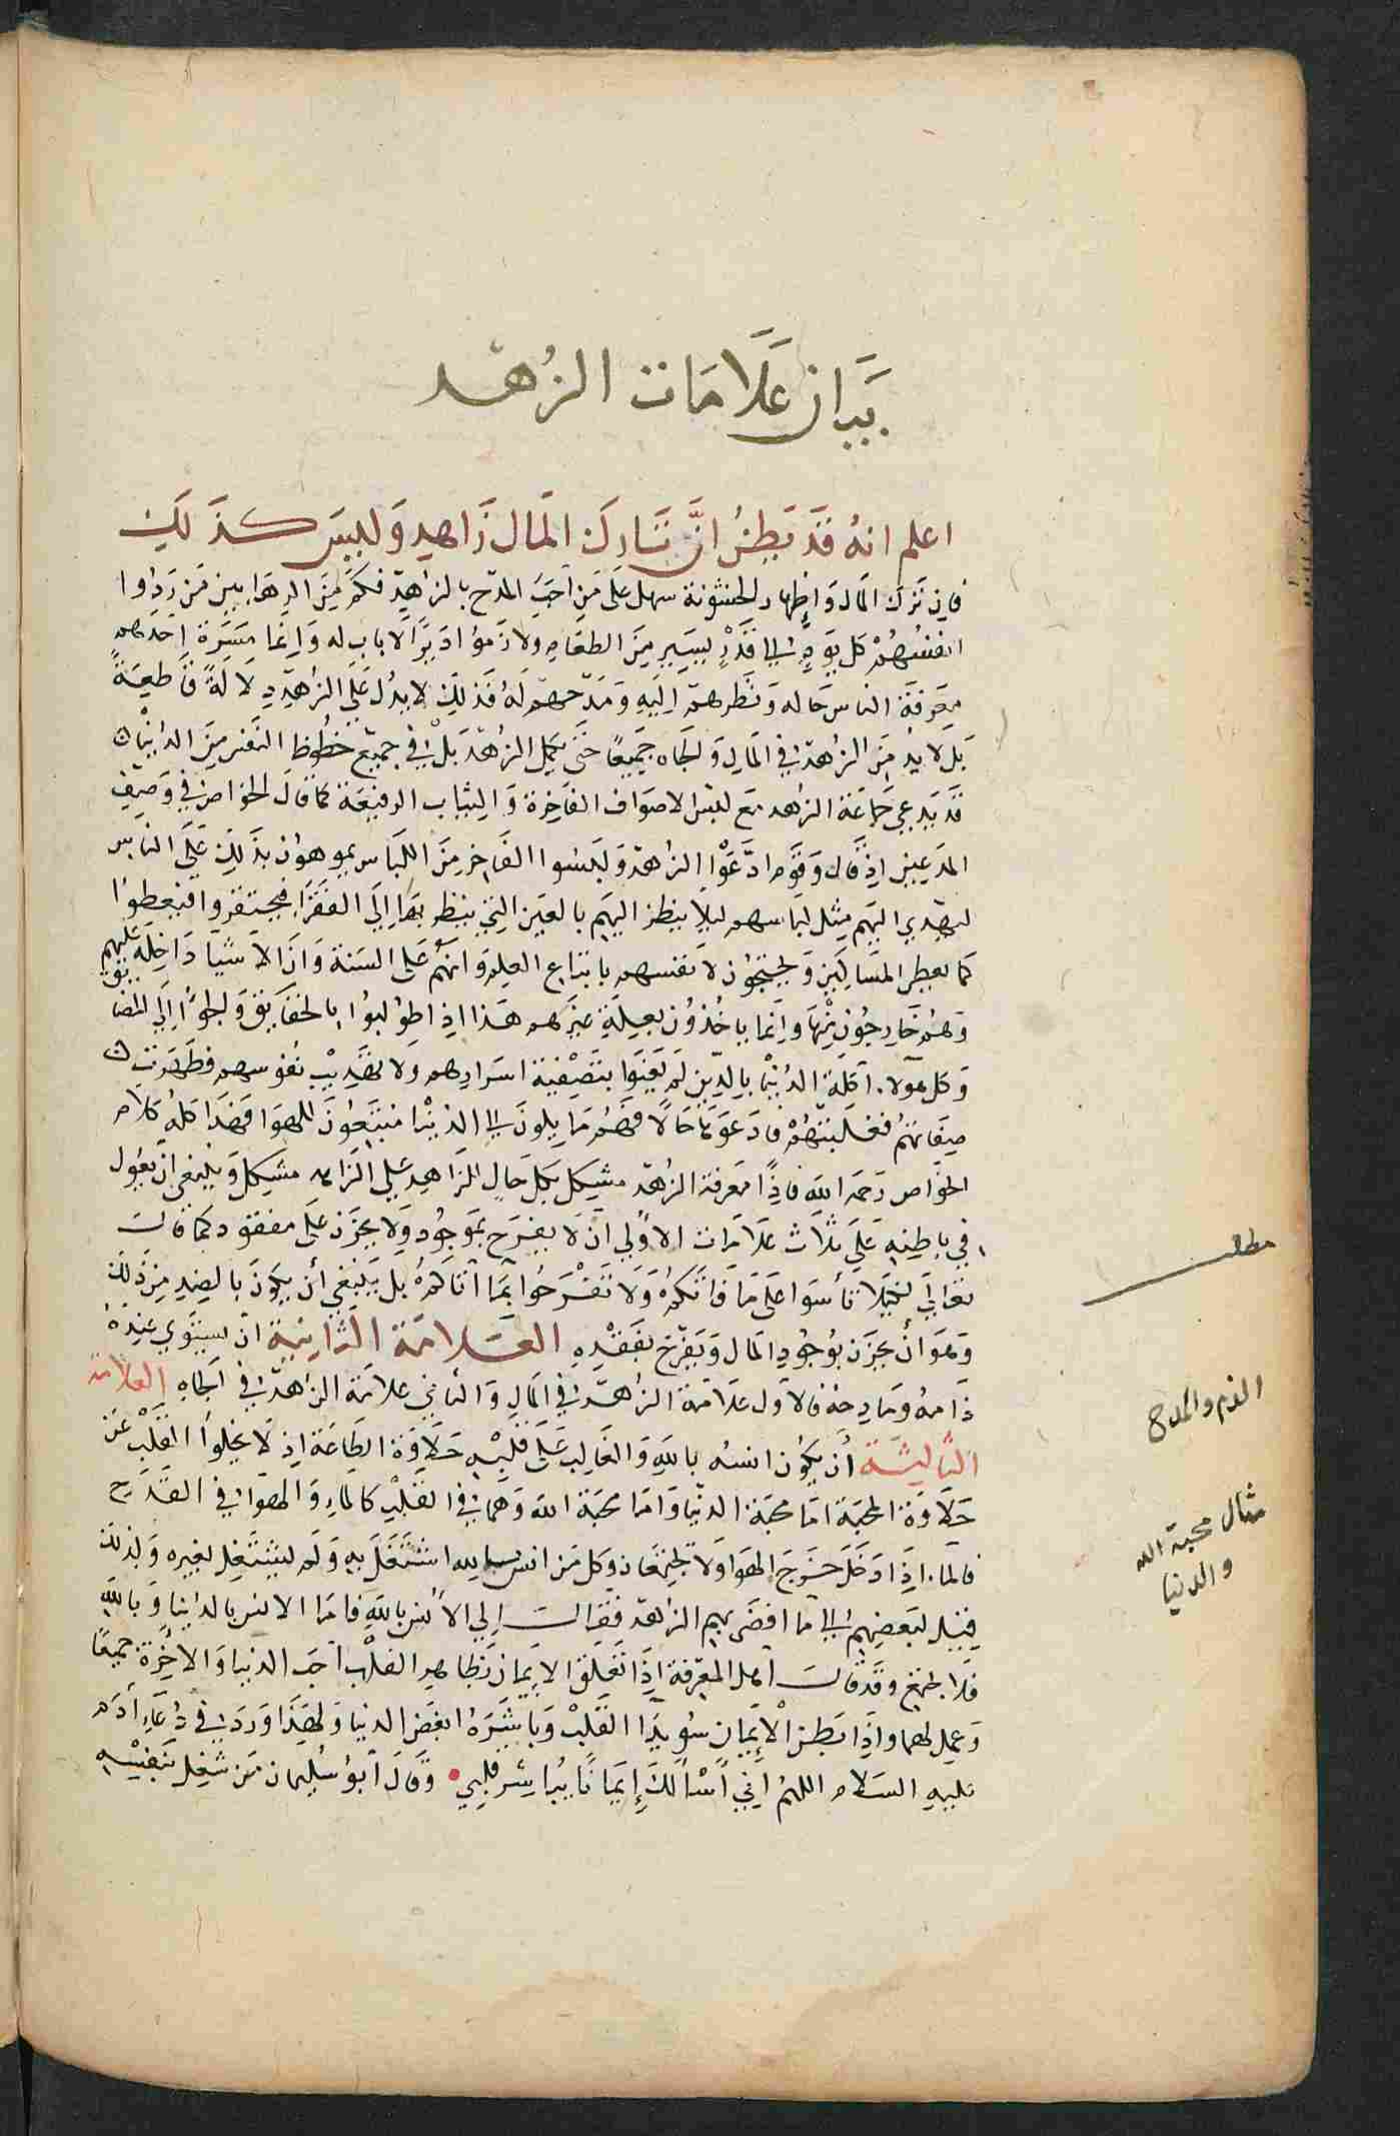 بيان علامات الزهد
اعلم انه قد يظن ان تارك المال زاهد وليس كذلك
فان ترك المال واظهار الخشونة سهل على من احب المدح بالزهد فكم من الرهابين من ردوا
انفسهم كل يوم الى قدر يسير من الطعام ولازموا ديرا لا باب له وانما مسرة احدهم
معرفة الناس حاله ونظرهم اليه ومدحهم له فذلك لا يدل على الزهد دلالة قاطعة
بل لا بد من الزهد في المال والجاه جميعا حتى يكمل الزهد بل في جميع حظوظ النفس من الدنيا
قد يدعي جماعة الزهد مع لبس الاصواف الفاخرة والثياب الرفيعة كما قال الخواص في وصف
المدعين اذ قال وقوم ادعوا الزهد ولبسوا الفاخر من اللباس يموهون بذلك على الناس
ليهدي اليهم مثل لباسهم ليلا ينظر اليهم بالعين التي ينظر بها الى الفقرا فيحتقروا فيعطوا
كما يعطى المساكين ويحتجون لانفسهم باتباع العلم وانهم على السنة وان الاشيا داخلة عليهم
وهم خارجون منها وانما ياخذون بعلة غيرهم هذا اذا طولبوا بالحقايق والجوا الى المضايق
وكل هولاء اكلة الدنيا بالدين لم يعنوا بتصفية اسرارهم ولا بتهذيب نفوسهم فظهرت
صفاتهم فغلبتهم فادعوها حالا فهم مايلون الى الدنيا متبعون للهوا فهذا كله كلام
الخواص رحمه الله فاذا معرفة الزهد مشكل بل حال الزاهد على الزاهد مشكل وينبغي ان يعول
في باطنه على ثلاث علامات الاولى ان لا يفرح بموجود ولا يحزن على مفقود كما قال
تعالى لكيلا تأسوا على ما فاتكم ولا تفرحوا بما اتاكم بل ينبغي أن يكون بالضد من ذلك
وهو أن يحزن بوجود المال ويفرح بفقده العلامة الثانية ان يستوي عنده
ذامه ومادحه فالاول علامة الزهد في المال والثاني علامة الزهد في الجاه العلامة
الثالثة أن يكون انسه بالله والغالب على قلبه حلاوة الطاعة اذ لا يخلوا القلب عن
حلاوة المحبة اما محبة الدنيا واما محبة الله وهما في القلب كالماء والهوا في القدح
فالماء اذا دخل خرج الهوا ولا يجتمعان وكل من انس بالله اشتغل به ولم يشتغل بغيره ولذلك
قيل لبعضهم الى ما افضى بهم الزهد فقال الى الأنس بالله فاما الانس بالدنيا وبالله
فلا يجتمع وقد قال اهل المعرفة اذا تعلق الايمان بظاهر القلب احب الدنيا والآخرة جميعا
وعمل لهما واذا بطن الإيمان سويدا القلب وباشره ابغض الدنيا ولهذا ورد في دعاء آدم
عليه السلام اللهم اني أسألك إيمانا يباشر قلبي وقال ابو سليمان من شغل بنفسه
مطلب
الذم والمدح
مثال محبة الله
والدنيا